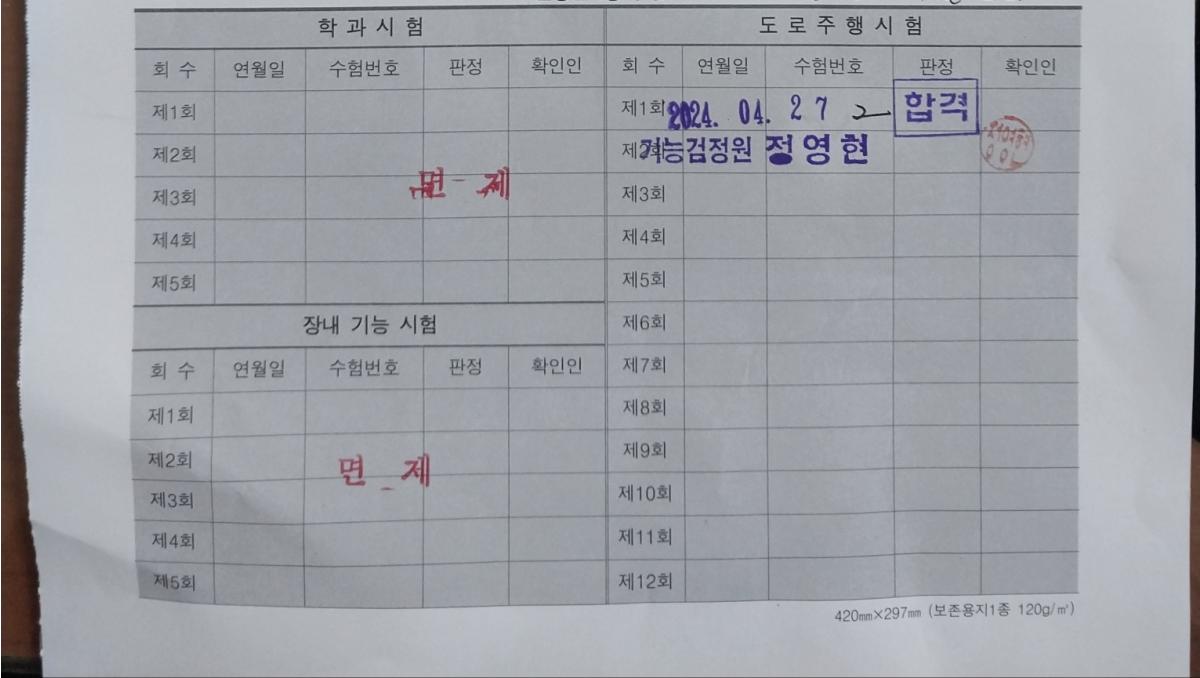 학 과 시 험
회 수 연월일 수험번호 판정 확인인
제1회
제2회
제3회
면 제
제4회
제5회
장내 기능 시험
회 수 연월일 수험번호 판정 확인인
제1회
제2회
면 제
제3회
제4회
제5회
도 로 주 행 시 험
회 수 연월일 수험번호 판정 확인인
제1회 2024. 04. 27 2 합격
제2회 기능검정원 정영현
제3회
제4회
제5회
제6회
제7회
제8회
제9회
제10회
제11회
제12회
420㎜×297㎜ (보존용지1종 120g/㎡)